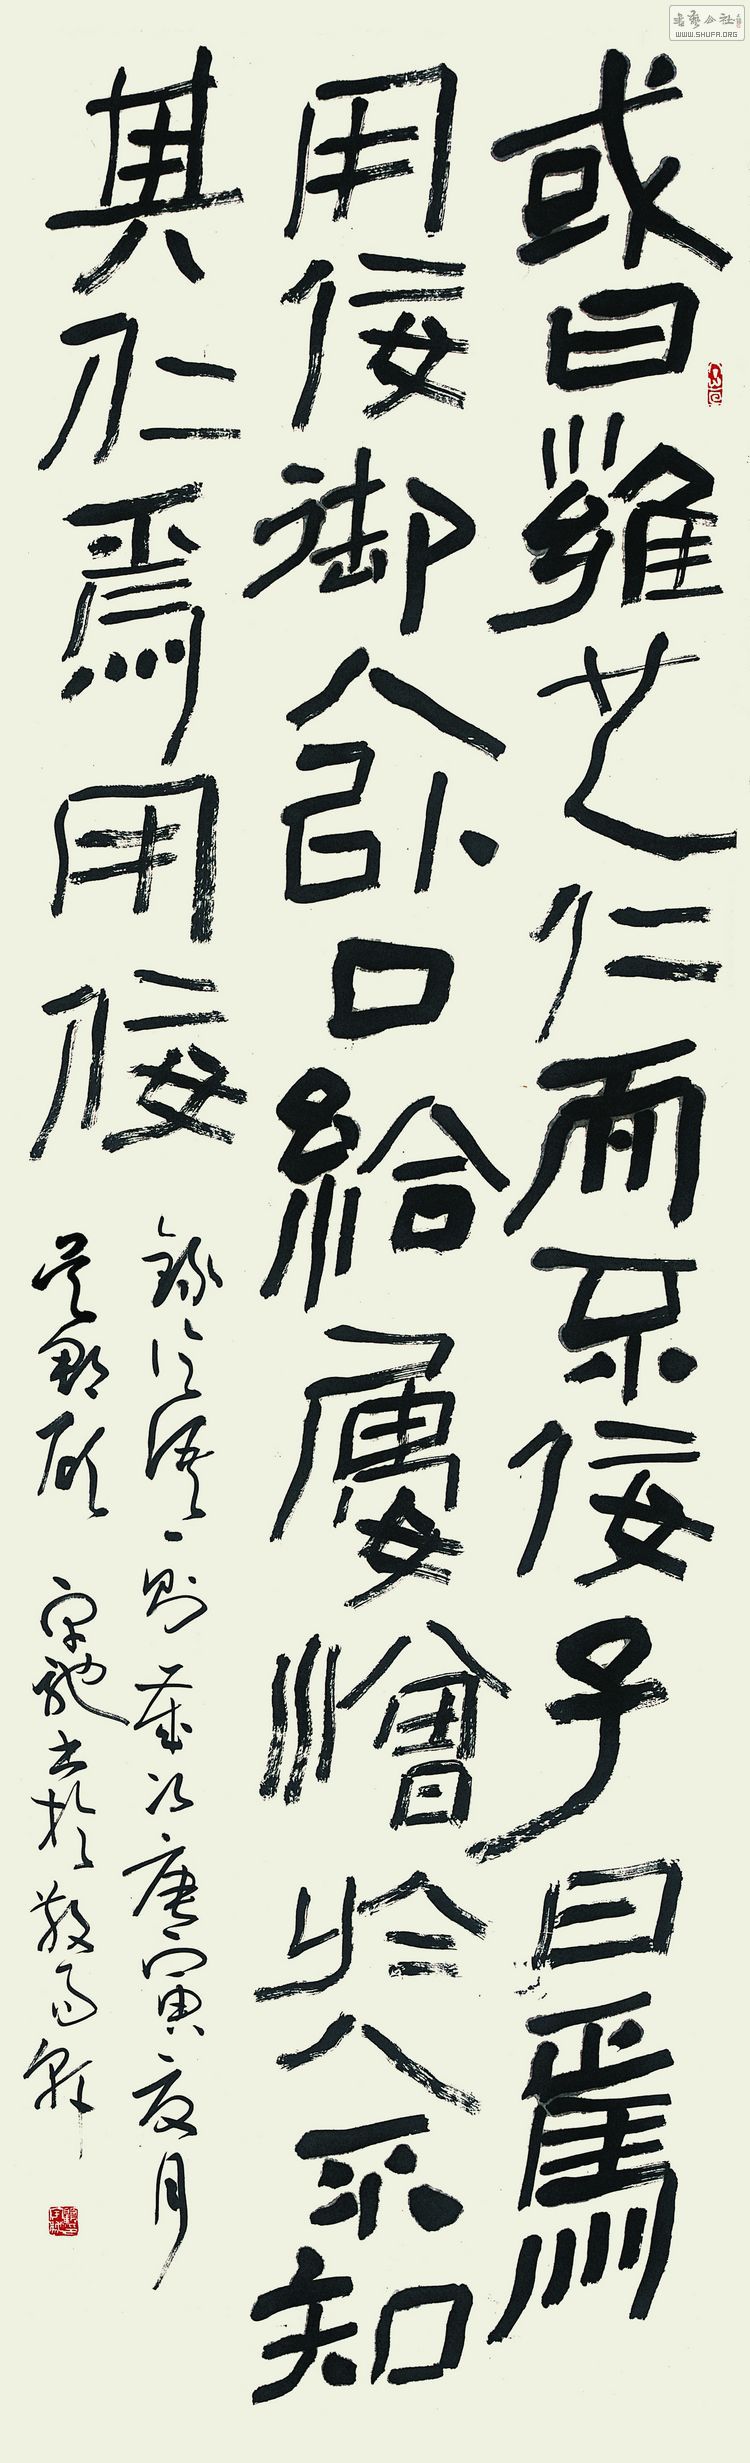 或曰雍也仁而不佞子曰焉
用佞御人以口給屢憎於人不知
其仁焉用佞
錄論語一則歲次庚寅夏月
吳郡 書於
書藝公社
WWW.SHUFA.ORG